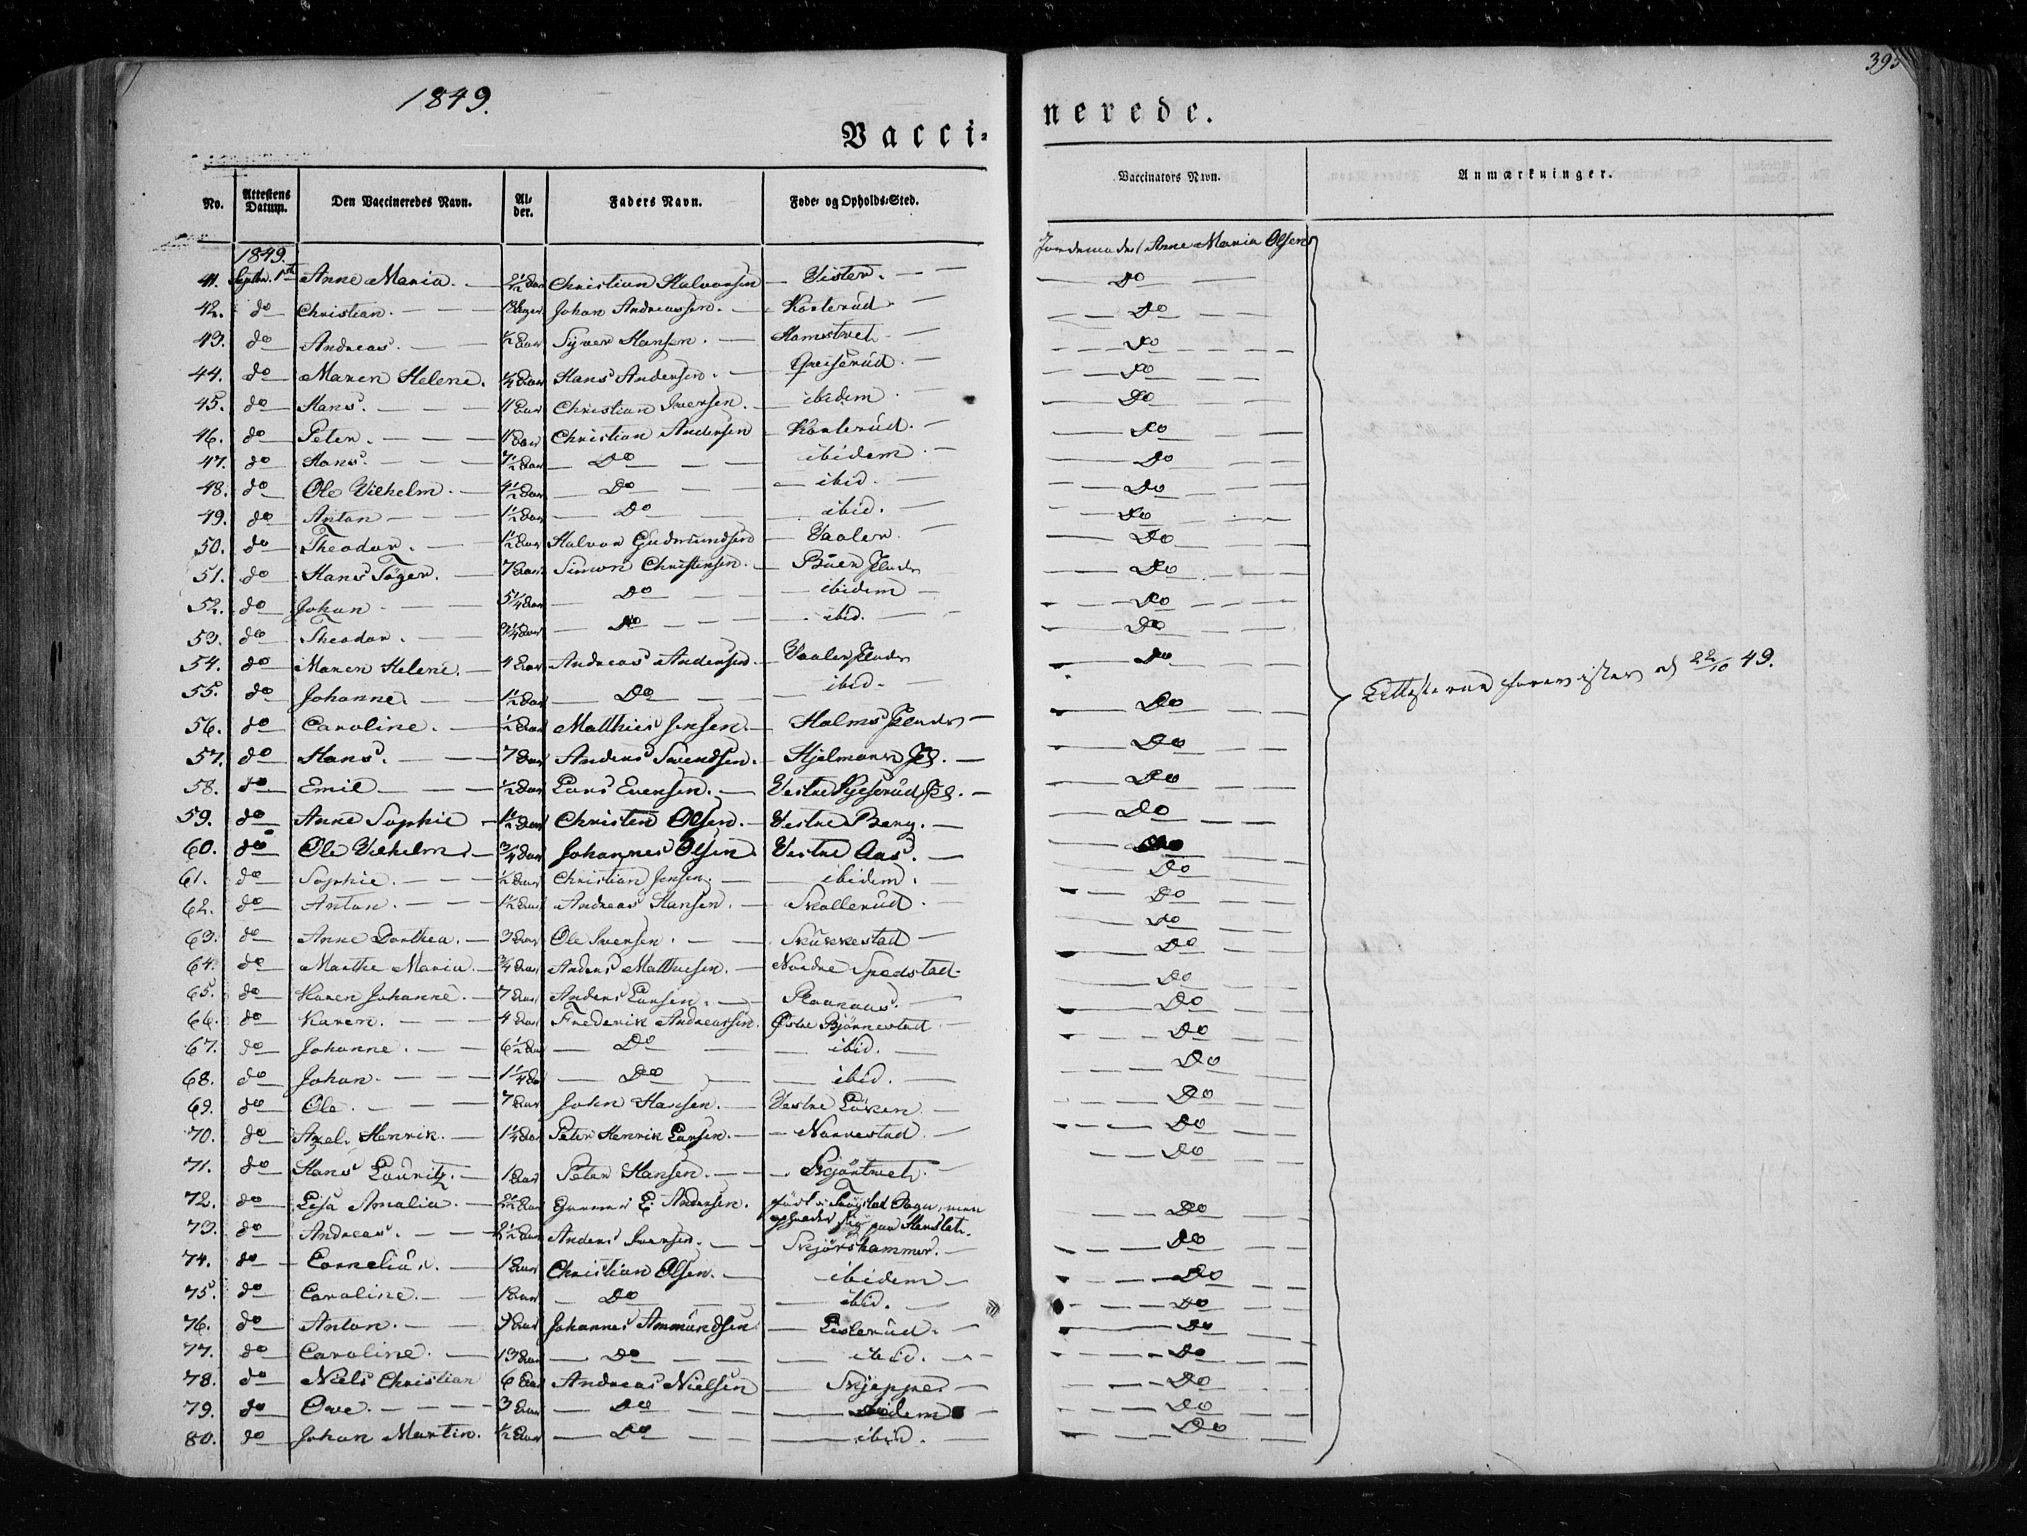 395
1849.
Vacci-
nerede.
No. Attestens Datum. Den Vaccineredes Navn. Al-der. Faders Navn. Føde- og Opholds-Sted. Vaccinators Navn. Anmærkninger.
1849. Jordemoder Anne Maria Olsen
41. Septbr. 1st Anne Maria. 2½ Aar Christian Halvorsen Vister. Do
42. do Christian. Johan Andreassen. Korterud Do
43. do Andreas. ½ Aar Syver Hansen. Hamstvet Do
44. do Maren Helene. ¼ Aar Hans Andersen. Do
45. do Hans. Christian Iversen. ibidem. Do
46. do Peter. Christian Andersen Korterud. Do
47. do Hans. 7½ Aar Do ibidem. Do
48. do Ole Vilhelm. 4½ Aar Do ibid. Do
49. do Anton 1½ Aar Do ibid. Do
50. do Theodor. 1½ Aar Halvor Gudmundsen Vaaler. Do
51. do Hans Töger. 7 Aar Simon Christensen. Do
52. do Johan 5¼ Aar Do ibidem Do
53. do Theodor. Do ibid. Do
54. do Maren Helene. 4 Aar Andreas Andersen. Do
55. do Johanne. 1½ Aar Do ibid. Do
56. do Caroline. ½ Aar Matthies Jensen. Do
57. do Hans. 7 Aar Anders Svendsen. Do
58. do Emil ½ Aar Lars Evensen. Do
59. do Anne Sophie 1½ Aar Christen Olsen. Vestre Berg. Do
60. do Ole Vilhelm. ¾ Aar Johannes Olsen. Vestre Aas. Do
61. do Sophie. ½ Aar Christian Jensen. ibidem. Do
62. do Anton. 1½ Aar Andreas Hansen. Skollerud. Do
63. do Anne Dorthea. 3 Aar Ole Iversen. Skukkestad Do
64. do Marthe Maria. ¾ Aar Anders Matthiesen. Nordre Spodstad. Do
65. do Karen Johanne. 7 Aar Anders Larsen. Do
66. do Karen. 4 Aar Frederik Andreassen. Östre Björnestad. Do
67. do Johanne. 6½ Aar Do ibid. Do
68. do Johan. 1¼ Do ibid. Do
69. do Ole. 7 Aar John Hansen. Vestre Löken Do
70. do Axel. Henrik. 1¼ Aar Peter Henrik Larsen. Narvestad. Do
71. do Hans Lauritz. 1 Aar Peter Hansen. Skjöntvet. Do
72. do Lisa Amalia. 2½ Aar Gunner E. Andersen. Do
73. do Andreas. 2½ Aar Anders Iversen. Skjörshammer. Do
74. do Cornelius. 1 Aar Christian Olsen. ibidem Do
75. do Caroline. Do ibid. Do
76. do Anton. 9 Aar Johannes Ammundsen Listerud. Do
77. do Caroline. 13 Aar Do ibid. Do
78. do Niels Christian 6 Aar Andreas Nielsen Skjeppe Do
79. do Ove. 3 Aar Do ibidem Do
80. do Johan Martin. ½ Aar Do ibid. Do
Attesterne forevister d 22/10 49.